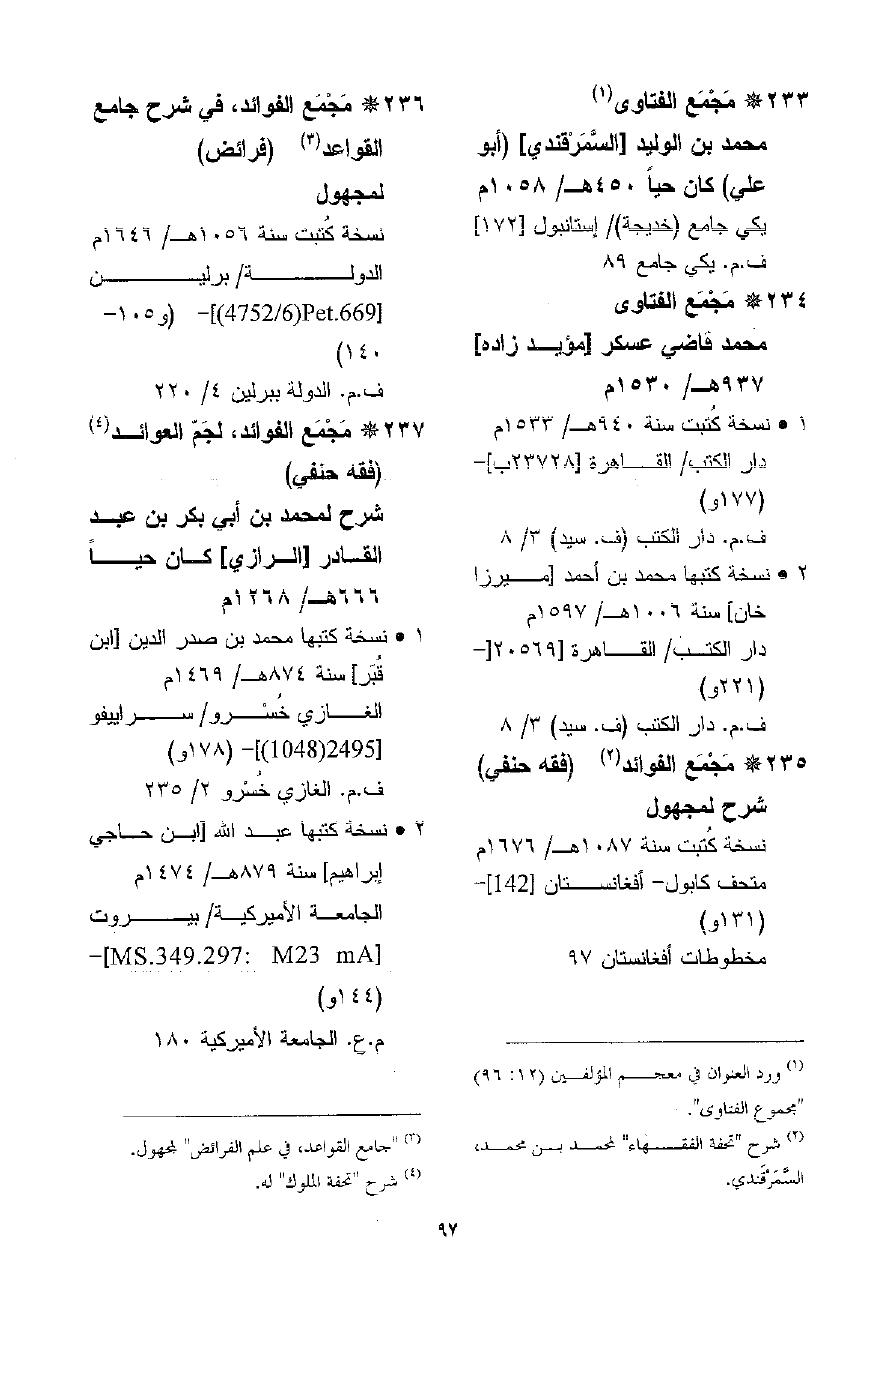 ٢٣٣* مَجْمَع الفتاوى(١)
محمد بن الوليد [السَّمَرْقندي] (أبو
علي) كان حياً ٤٥٠هـ/ ١٠٥٨م
يكي جامع (خديجة)/ إستانبول [١٧٢]
ف.م. يكي جامع ٨٩
٢٣٤* مَجْمَع الفتاوى
محمد قاضي عسكر [مؤيد زاده]
٩٣٧هـ/ ١٥٣٠م
١ • نسخة كُتبت سنة ٩٤٠هـ/ ١٥٣٣م
دار الكتب/ القاهرة [٢٣٧٢٨ب]-
(١٧٧و)
ف.م. دار الكتب (ف. سيد) ٣/ ٨
٢ • نسخة كتبها محمد بن أحمد [ميرزا
خان] سنة ١٠٠٦هـ/ ١٥٩٧م
دار الكتب/ القاهرة [٢٠٥٦٩]-
(٢٢١و)
ف.م. دار الكتب (ف. سيد) ٣/ ٨
٢٣٥* مَجْمَع الفوائد(٢) (فقه حنفي)
شرح لمجهول
نسخة كُتبت سنة ١٠٨٧هـ/ ١٦٧٦م
متحف كابول- أفغانستان [142]-
(١٣١و)
مخطوطات أفغانستان ٩٧
(١) ورد العنوان في معجم المؤلفين (١٢: ٩٦)
"مجموع الفتاوى".
(٢) شرح "تحفة الفقهاء" لمحمد بن محمد،
السَّمَرْقَندي.
٢٣٦* مَجْمَع الفوائد، في شرح جامع
القواعد(٣) (فرائض)
لمجهول
نسخة كُتبت سنة ١٠٥٦هـ/ ١٦٤٦م
الدولة/ برلين
[4752/6)Pet.669)]- (و١٠٥-
١٤٠)
ف.م. الدولة ببرلين ٤/ ٢٢٠
٢٣٧* مَجْمَع الفوائد، لجَمّ العوائد(٤)
(فقه حنفي)
شرح لمحمد بن أبي بكر بن عبد
القادر [الرازي] كان حياً
٦٦٦هـ/ ١٢٦٨م
١ • نسخة كتبها محمد بن صدر الدين [ابن
قُبَر] سنة ٨٧٤هـ/ ١٤٦٩م
الغازي خُسْرو/ سراييفو
[1048)2495)]- (١٧٨و)
ف.م. الغازي خُسْرو ٢/ ٢٣٥
٢ • نسخة كتبها عبد الله [ابن حاجي
إبراهيم] سنة ٨٧٩هـ/ ١٤٧٤م
الجامعة الأميركية/ بيروت
[MS.349.297: M23 mA]-
(١٤٤و)
م.ع. الجامعة الأميركية ١٨٠
(٣) "جامع القواعد، في علم الفرائض" لمجهول.
(٤) شرح "تحفة الملوك" له.
٩٧